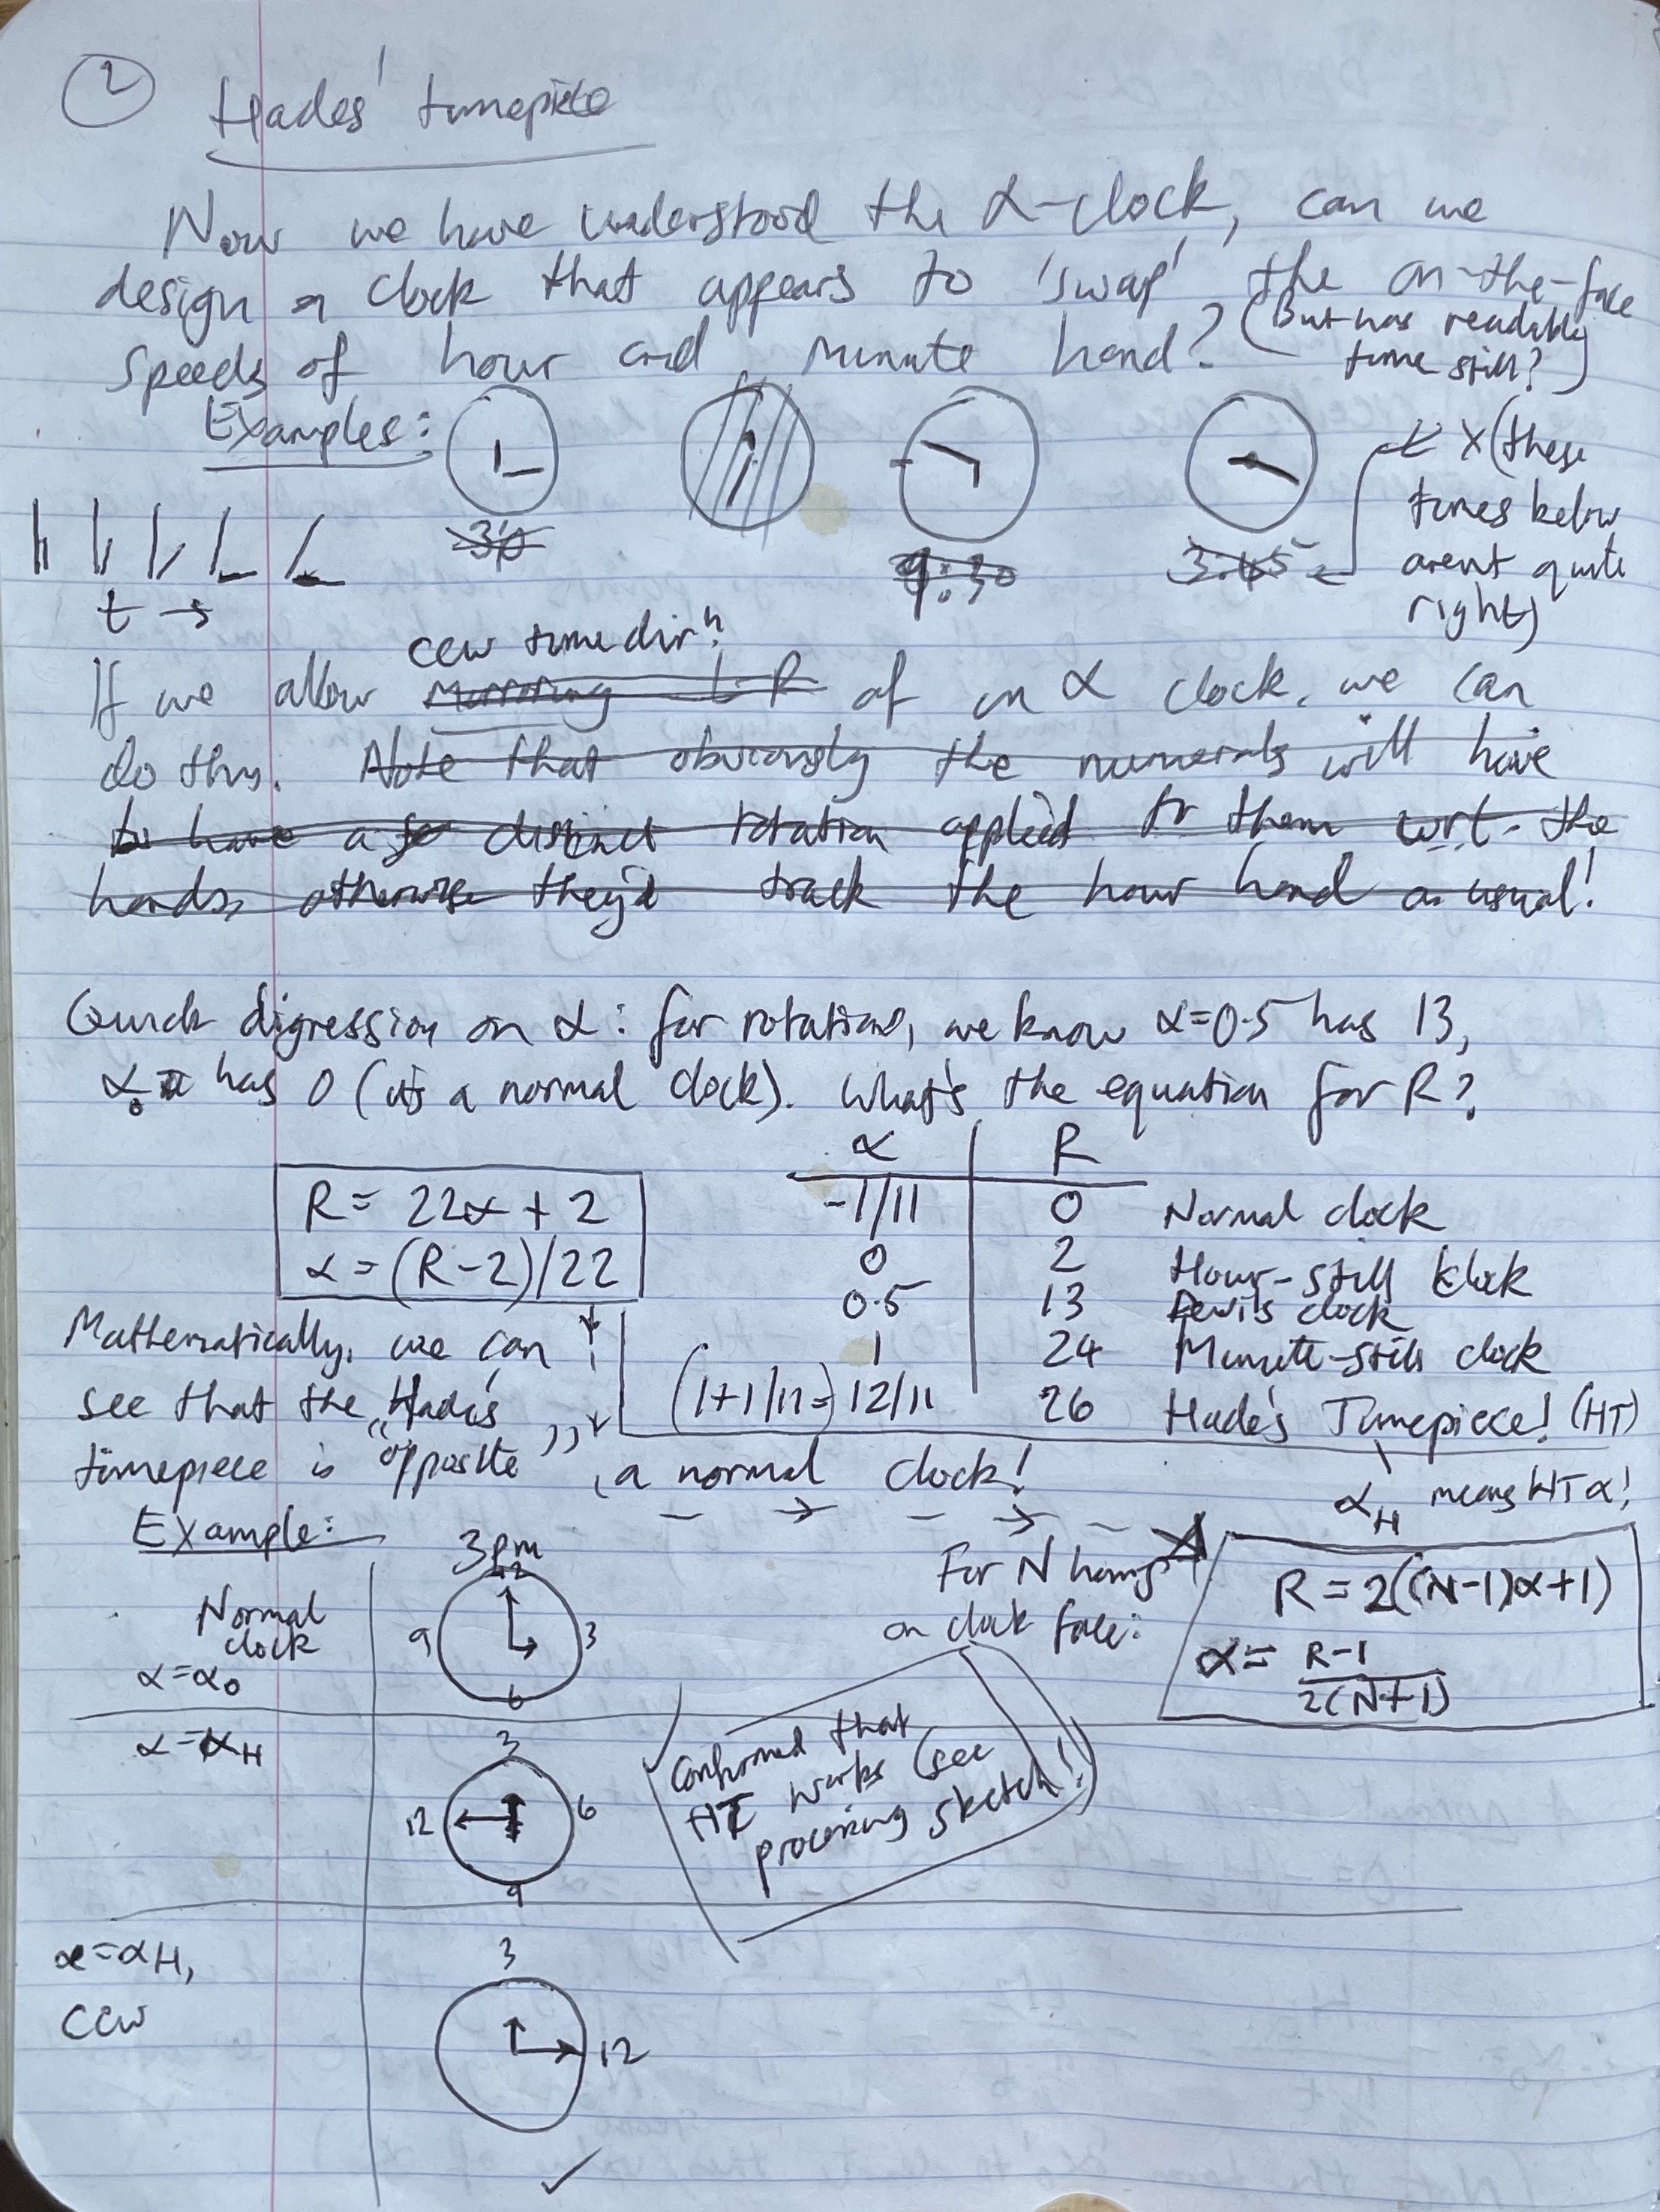 2 Hades' timepiece
Now we have understood the α-clock, can we
design a clock that appears to 'swap' the on-the-face
speeds of hour and minute hand? (But has readable
time still?)
Examples:
3p
9:30
3:45
← X (these
times below
arent quite
right)
t →
ccw time dirⁿ
If we allow Mirroring L-R of an α clock, we can
do this. Note that obviously the numerals will have
to have a distinct rotation applied to them wrt. the
hands, otherwise they'd track the hour hand as usual!
Quick digression on α: for rotations, we know α=0.5 has 13,
α₀ has 0 (it's a normal clock). What's the equation for R?
α | R
R = 22α + 2
α = (R-2)/22
-1/11 | 0 Normal clock
0 | 2 Hour-still klock
0.5 | 13 Devils clock
1 | 24 Minute-still clock
(1+1/11=) 12/11 | 26 Hade's Timepiece! (HT)
Mathematically, we can
see that the Hade's
timepiece is "opposite" a normal clock!
α_H means HT α!
Example:
3pm
12
9 3
6
Normal
clock
α=α₀
For N hours
on clock face:
R = 2((N-1)α+1)
α = R-1
2(N+1)
α=α_H
3
12 6
9
Confirmed that
HT works (see
processing sketch!)
α=α_H,
ccw
3
12